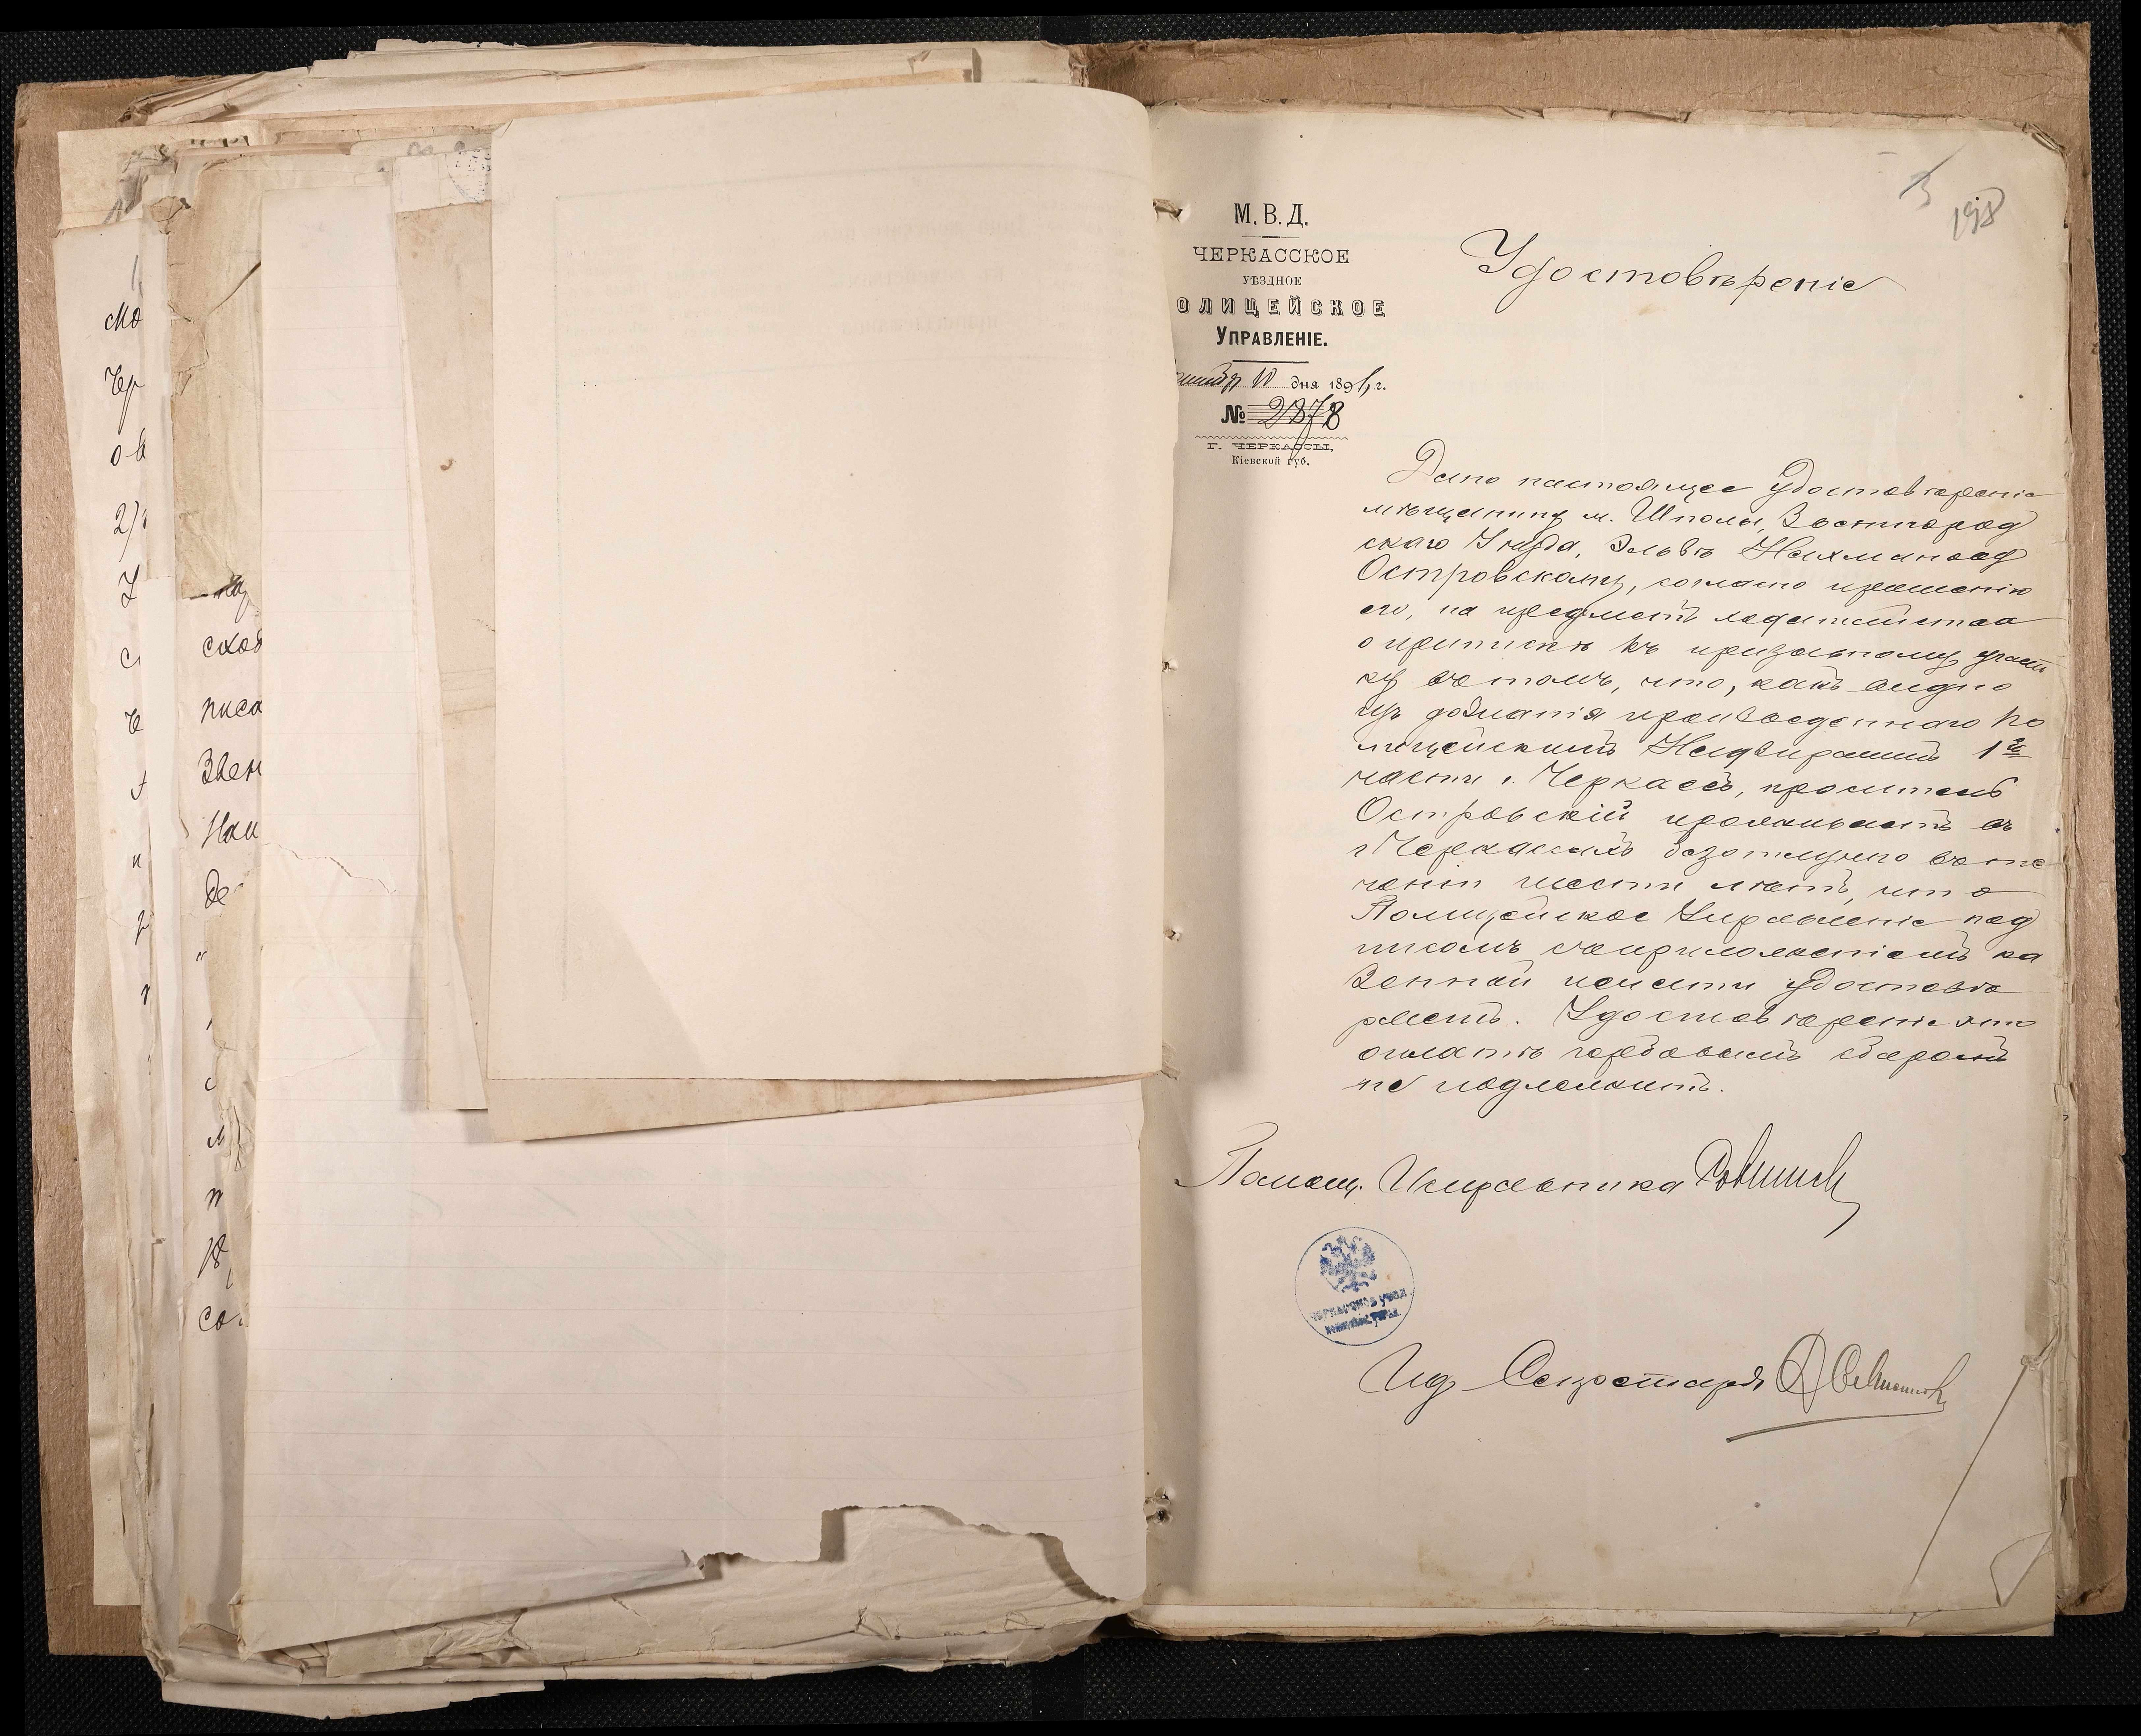 198
М. В. Д.
ЧЕРКАССКОЕ
УѢЗДНОЕ
ОЛИЦЕЙСКОЕ
УПРАВЛЕНІЕ.
10 дня 189 г.
№ 2878
Г. ЧЕРКАССЫ,
Кіевской губ.
Удостовѣреніе
Дано настоящее Удостовѣреніе
мѣщанину м. Шполы, Звенигород
скаго Уѣзда,
Островскому, согласно прошенію
его, на предметъ ходатайства
о припискѣ къ призывному участ
ку въ томъ, что, какъ видно
изъ дознанія произведеннаго По
лицейскимъ Надзирателемъ 1й
части г. Черкассъ, проситель
Островскій проживаетъ въ
г Черкассахъ безотлучно въ те
ченіи шести лѣтъ, что
Полицейское Управленіе под
писомъ съ приложеніемъ ка
зенной печати удостовѣ
ряетъ. Удостовѣреніе это
оплатѣ гербовымъ сборомъ
не подлежитъ.
Помощ. Исправника
Ид Секретаря
мо
Чер
ов
сход
писа
Звен